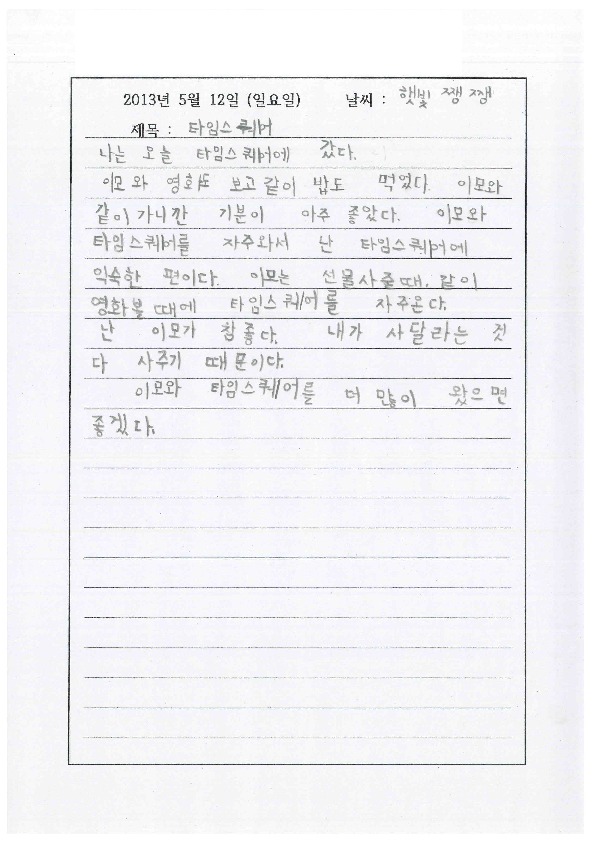 2013년 5월 12일 (일요일) 날씨 : 햇빛 쨍쨍
제목 : 타임스퀘어
나는 오늘 타임스퀘어에 갔다.
이모와 영화도 보고같이 밥도 먹었다. 이모와
같이가니깐 기분이 아주 좋았다. 이모와
타임스퀘어를 자주와서 난 타임스퀘어에
익숙한 편이다. 이모는 선물사줄때, 같이
영화볼때에 타임스퀘어를 자주온다.
난 이모가 참좋다. 내가 사달라는 것
다 사주기 때문이다.
이모와 타임스퀘어를 더 많이 왔으면
좋겠다.